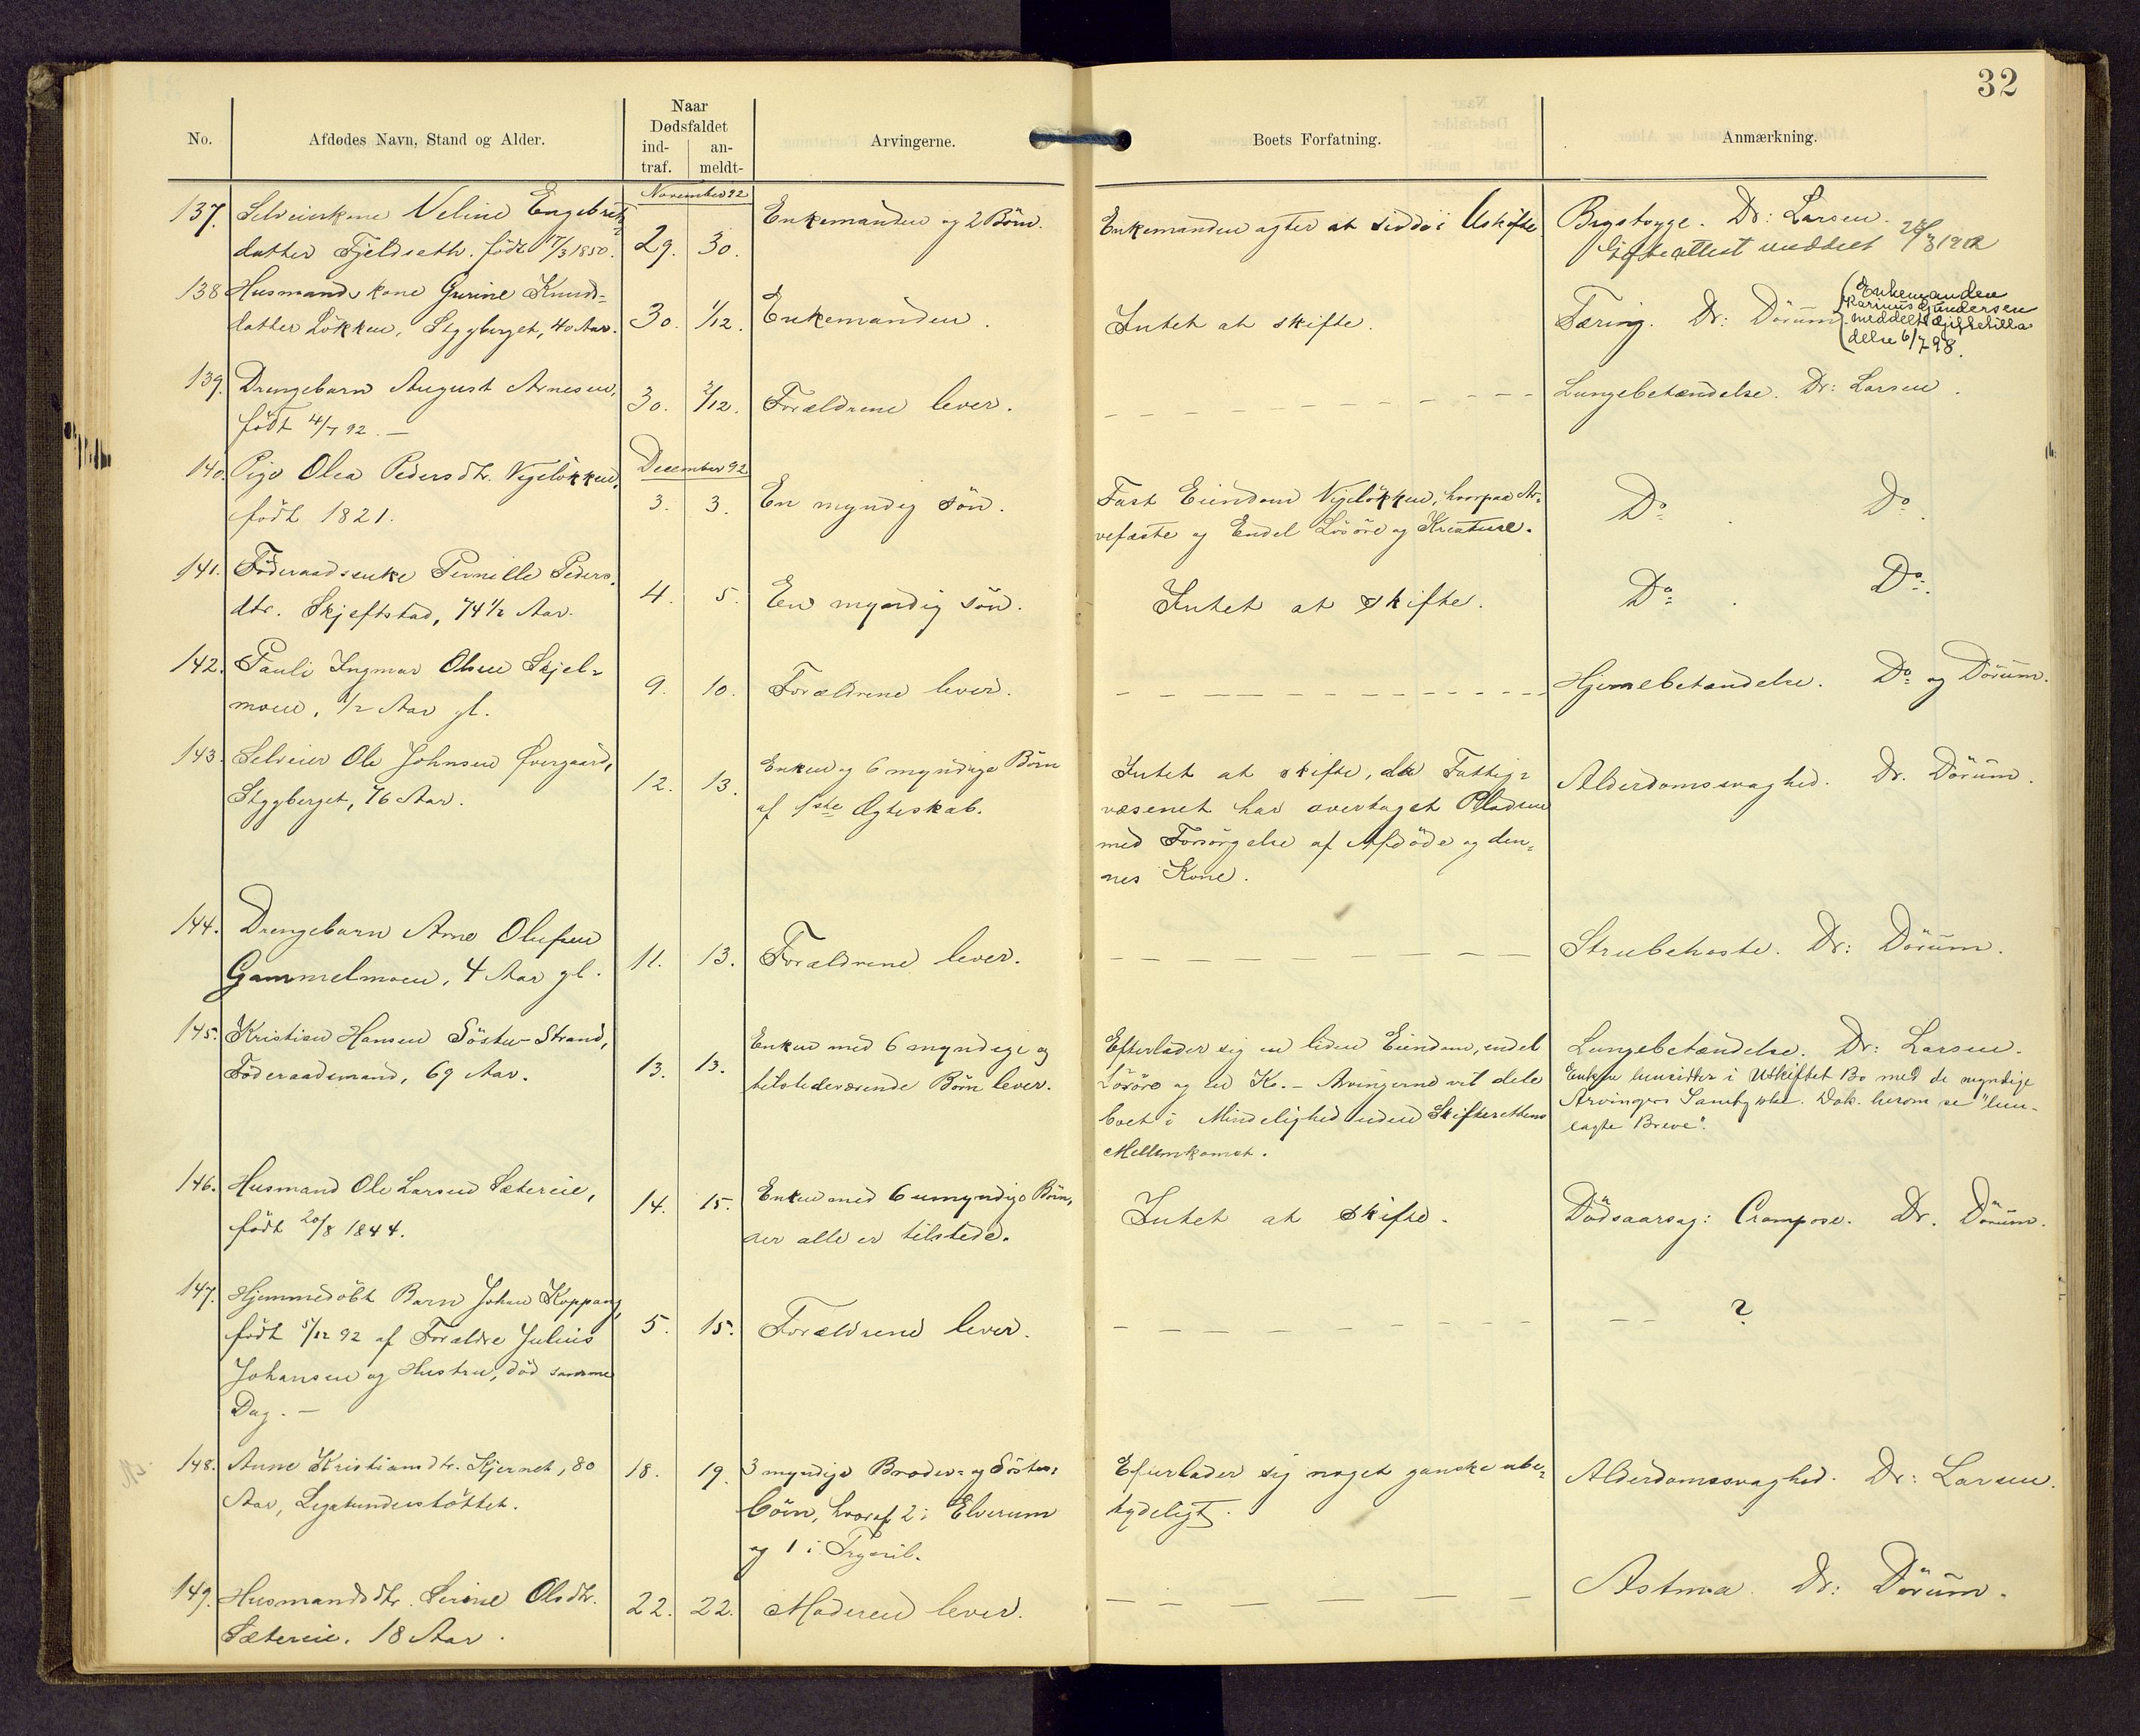 32
No.
Afdødes Navn, Stand og Alder.
Naar
Dødsfaldet
ind-
traf.
an-
meldt-
Arvingerne.
Boets Forfatning.
Anmærkning.
November 92
137. Selveierkone Neline Engebrets-
datter Fjeldseth. født 17/3 1850.
29. 30.
Enkemanden og 2 Börn.
Enkemanden agter at sidde i Uskifte.
Brystsyge. Dr: Larsen.
Gifteattest meddelt
138 Husmandskone Gurine Knuds-
datter Løkken, Styggberget, 40 Aar.
30. 1/12.
Enkemanden.
Intet at skifte.
Tæring. Dr: Dörum.
(Enkemanden
Karinius Gundersen
meddelt Ægteskabs
delse 6/7 98.
139. Drengebarn August Arnesen,
født 4/7 92. —
30. 2/12.
Forældrene lever.
Lungebetændelse. Dr: Larsen.
December 92
140. Pige Olea Pedersdtr. Vegeløkken,
født 1821.
3. 3.
En myndig sön.
Fast Eiendom Vegeløkken, hvorpaa Ar-
vefæste og Endel Løsöre og Kreature.
Do. Do.
141. Föderaadsenke Pernille Peders.
dtr. Skjeftstad, 74 1/2 Aar.
4. 5.
En myndig sön.
Intet at skifte.
Do. Do.
142. Pauli Ingmar Olsen Skjel-
moen, 1/2 Aar gl.
9. 10.
Forældrene lever.
Hjernebetændelse. Do og Dörum.
143. Selveier Ole Johnsen Øvergaard,
Styggberget, 76 Aar.
12. 13.
Enken og 6 myndige Börn
af 1ste Ægteskab.
Intet at skifte, da Fattig-
væsenet har overtaget Pladsen
med Forsörgelse af Afdöde og den-
nes Kone.
Alderdomssvaghed. Dr. Dörum.
144. Drengebarn Arne Olufsen
Gammelmoen, 4 Aar gl.
11. 13.
Forældrene lever.
Strubehoste. Dr: Dörum.
145. Kristian Hansen Söstu-Strand,
Föderaadsmand, 69 Aar.
13. 13.
Enken med 6 myndige og
tilstedeværende Börn lever.
Efterlader sig en liden Eiendom, endel
Lösöre og en Ko. - Arvingerne vil dele
boet i Mindelighed uden Skifterettens
Mellemkomst.
Lungebetændelse. Dr: Larsen.
Enken hensidder i Uskiftet Bo med de myndige
Arvingers Samtykke. Dok. herom se "hen-
lagte Breve".
146. Husmand Ole Larsen Sætereie,
født 20/8 1844.
14. 15.
Enken med 6 umyndige Börn,
der alle er tilstede.
Intet at skifte.
Dödsaarsag: Dr. Dörum.
147. Hjemmedöbt Barn Johan Koppang,
født 5/12 92 af Forældre Julius
Johansen og Hustru, död samme
Dag. —
5. 15.
Forældrene lever.
?
148. Anne Kristiansdtr. Kjernet, 80
Aar, Legatunderstöttet.
18. 19.
3 myndige Broder- og Söster-
börn, hvoraf 2 i Elverum
og 1 i Trysil.
Efterlader sig noget ganske ube-
tydeligt.
Alderdomssvaghed. Dr: Larsen.
149. Husmandsdtr. Serine Olsdtr.
Sætereie. 18 Aar.
22. 22.
Moderen lever.
Astma. Dr: Dörum.